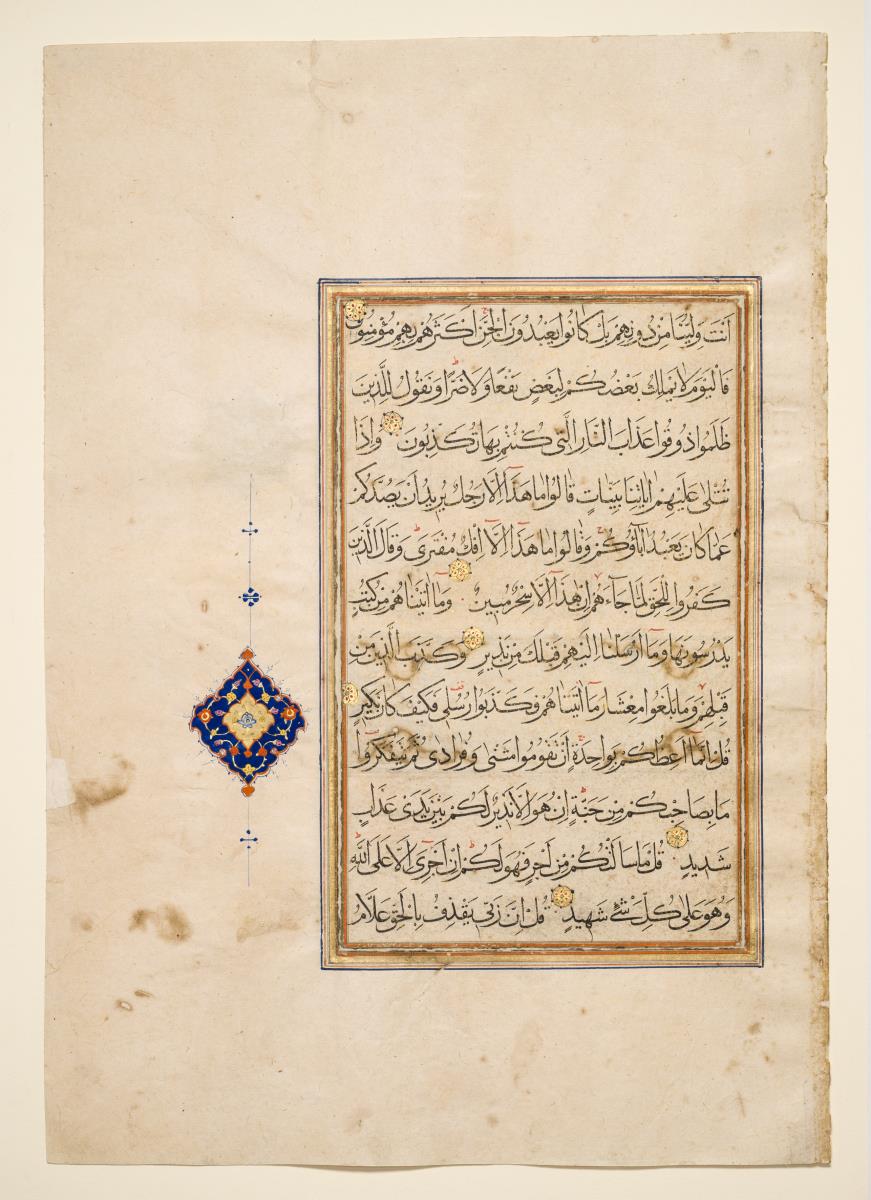 اَنْتَ وَلِيُّنَا مِنْ دُونِهِمْ بَلْ كَانُوا يَعْبُدُونَ الْجِنَّ اَكْثَرُهُمْ بِهِمْ مُؤْمِنُونَ
فَالْيَوْمَ لَا يَمْلِكُ بَعْضُكُمْ لِبَعْضٍ نَفْعًا وَلَا ضَرًّا وَنَقُولُ لِلَّذِينَ
ظَلَمُوا ذُوقُوا عَذَابَ النَّارِ الَّتِى كُنْتُمْ بِهَا تُكَذِّبُونَ وَاِذَا
تُتْلٰى عَلَيْهِمْ اٰيَاتُنَا بَيِّنَاتٍ قَالُوا مَا هٰذَا اِلَّا رَجُلٌ يُرِيدُ اَنْ يَصُدَّكُمْ
عَمَّا كَانَ يَعْبُدُ اٰبَاؤُكُمْ وَقَالُوا مَا هٰذَا اِلَّا اِفْكٌ مُفْتَرًى وَقَالَ الَّذِينَ
كَفَرُوا لِلْحَقِّ لَمَّا جَاءَهُمْ اِنْ هٰذَا اِلَّا سِحْرٌ مُبِينٌ وَمَا اٰتَيْنَاهُمْ مِنْ كُتُبٍ
يَدْرُسُونَهَا وَمَا اَرْسَلْنَا اِلَيْهِمْ قَبْلَكَ مِنْ نَذِيرٍ وَكَذَّبَ الَّذِينَ مِنْ
قَبْلِهِمْ وَمَا بَلَغُوا مِعْشَارَ مَا اٰتَيْنَاهُمْ فَكَذَّبُوا رُسُلِى فَكَيْفَ كَانَ نَكِيرِ
قُلْ اِنَّمَا اَعِظُكُمْ بِوَاحِدَةٍ اَنْ تَقُومُوا مَثْنٰى وَفُرَادٰى ثُمَّ تَتَفَكَّرُوا
مَا بِصَاحِبِكُمْ مِنْ جِنَّةٍ اِنْ هُوَ اِلَّا نَذِيرٌ لَكُمْ بَيْنَ يَدَىْ عَذَابٍ
شَدِيدٍ قُلْ مَا سَاَلْتُكُمْ مِنْ اَجْرٍ فَهُوَ لَكُمْ اِنْ اَجْرِىَ اِلَّا عَلَى اللّٰهِ
وَهُوَ عَلٰى كُلِّ شَىْءٍ شَهِيدٌ قُلْ اِنَّ رَبِّى يَقْذِفُ بِالْحَقِّ عَلَّامُ